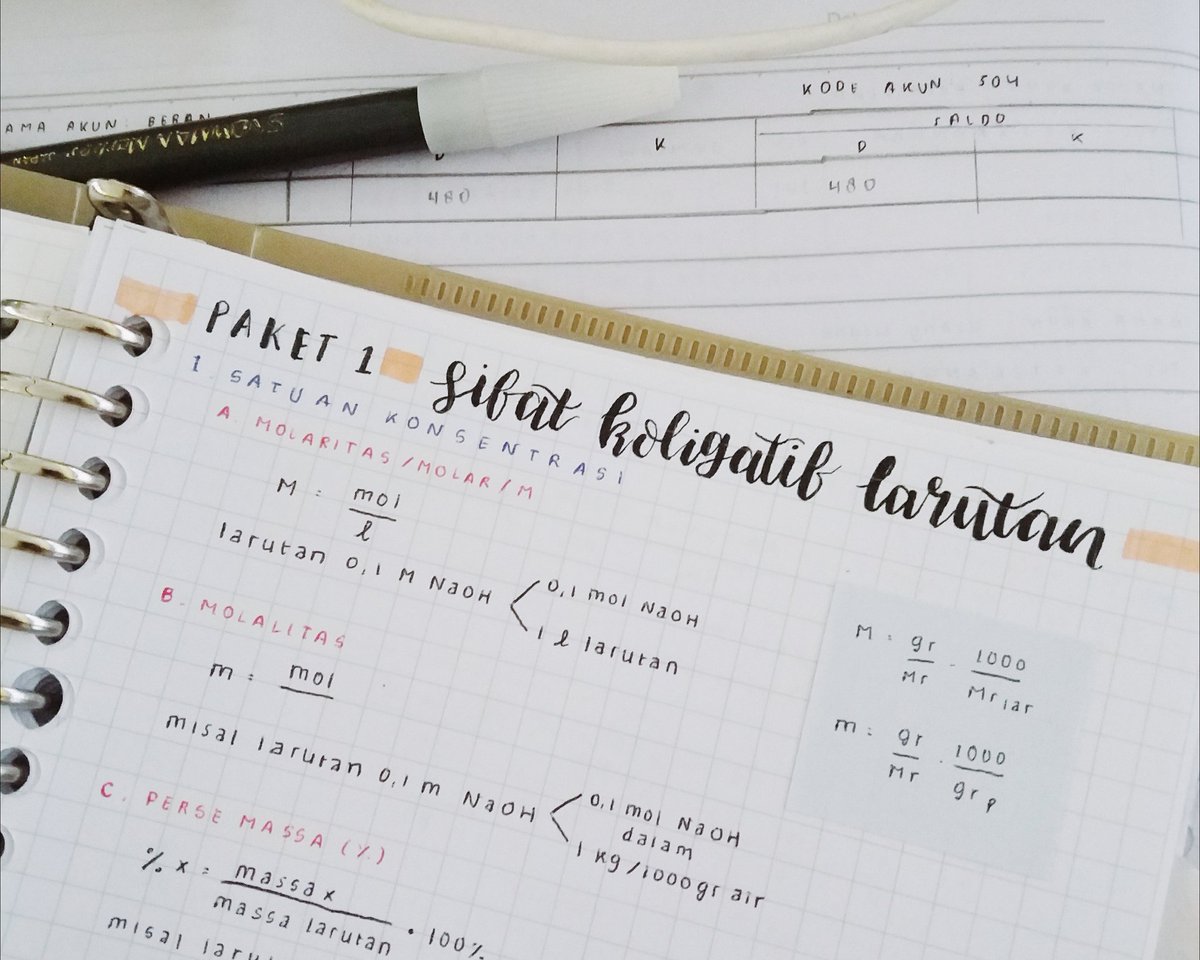 KODE AKUN 504
AMA AKUN: BEBAN
SALDO
K D K
480 480
PAKET 1 sifat koligatif larutan
I. SATUAN KONSENTRASI
A. MOLARITAS/MOLAR/M
M = mol
l
larutan 0,1 M NaOH < 0,1 mol NaOH
1 l larutan
B. MOLALITAS
m = mol
misal larutan 0,1 m NaOH < 0,1 mol NaOH
dalam
1 kg/1000gr air
C. PERSE MASSA (%)
% x = massa x
massa larutan • 100%
misal laru
M = gr . 1000
Mr Mr lar
m = gr . 1000
Mr gr p